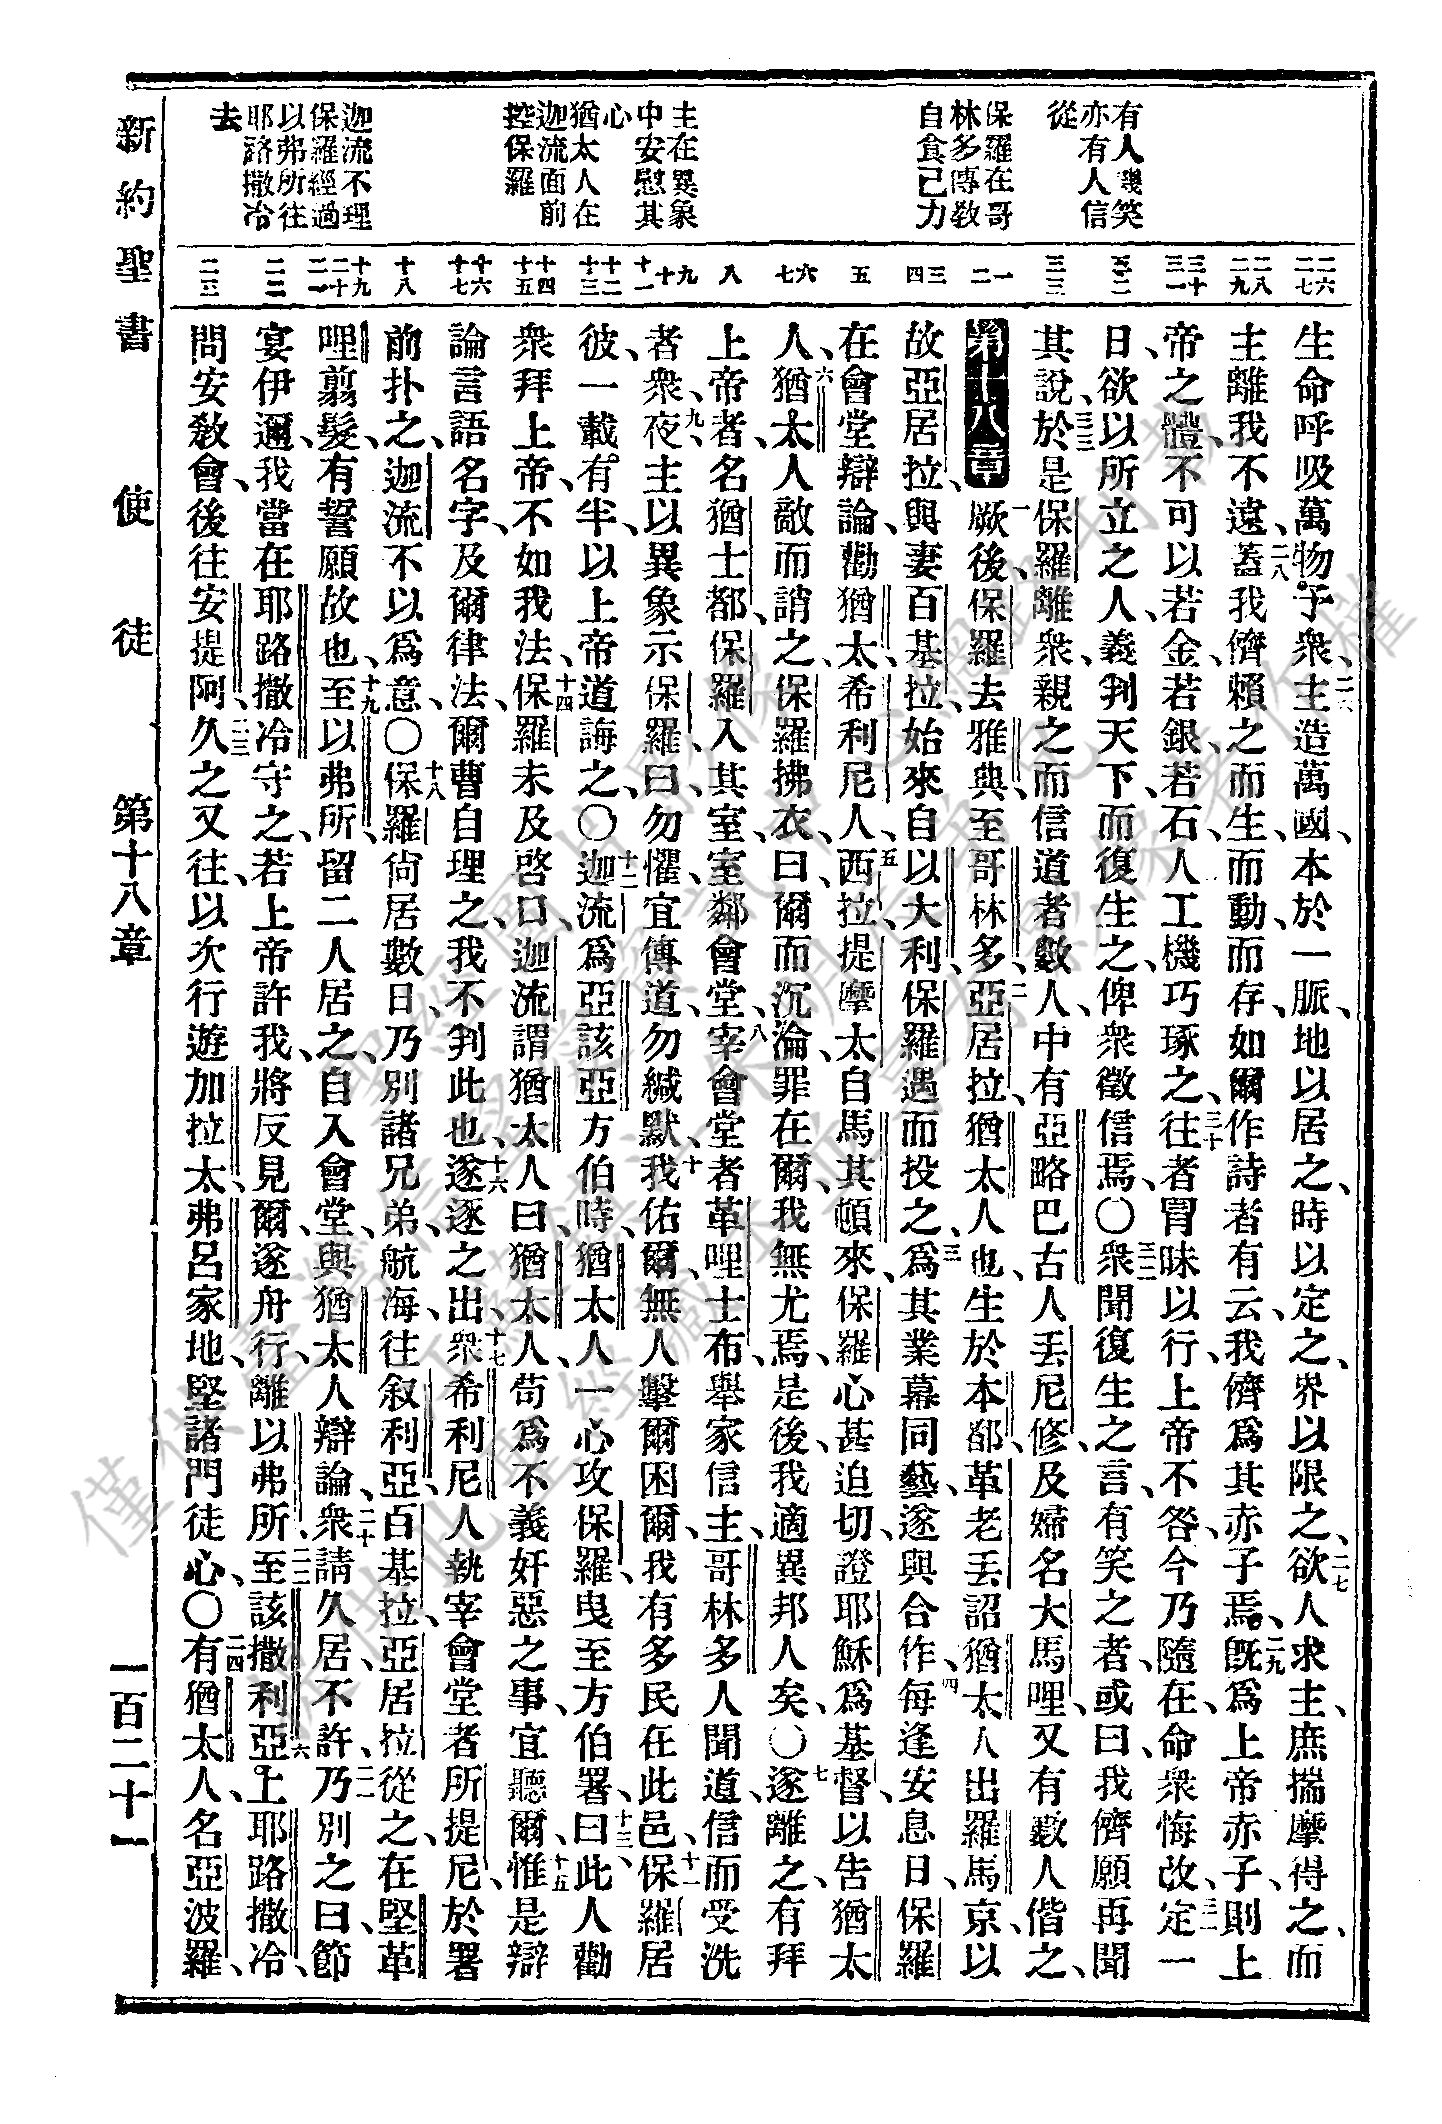 有人譏笑
亦有人信
從
保羅在哥
林多傳敎
自食己力
主在異象
中安慰其
心
猶太人在
迦流面前
控保羅
迦流不理
保羅經過
以弗所往
耶路撒冷
去
二六 二七
二八 二九
三十 三一
三二
三三
一 二
三 四
五
六 七
八
九 十 十一
十二 十三
十四 十五
十六 十七
十八
十九 二十 二一
二二
二三
生命呼吸萬物。予衆、二六主造萬國、本於一脈、地以居之、時以定之、界以限之、二七欲人求主、庶揣摩得之、而
主離我不遠、二八蓋我儕賴之而生、而動、而存、如爾作詩者有云、我儕爲其亦子焉、二九旣爲上帝赤子、則上
帝之體、不可以若金、若銀、若石、人工機巧琢之、三十往者冒昧以行、上帝不咎、今乃隨在、命衆悔改、三一定一
日、欲以所立之人、義判天下、而復生之、俾衆徵信焉、〇三二衆聞復生之言、有笑之者、或曰、我儕願再聞
其說、三三於是保羅離衆、親之而信道者數人、中有亞略巴古人丟尼修、及婦名大馬哩、又有數人偕之、
第十八章 一厥後、保羅去雅典、至哥林多、二亞居拉、猶太人也、生於本都、革老丟詔猶太人出羅馬京、以
故亞居拉、與妻百基拉、始來自以大利、保羅遇而投之、三爲其業幕同藝、遂與合作、四每逢安息日、保羅
在會堂辯論、勸猶太、希利尼人、五西拉提摩太自馬其頓來、保羅心甚迫切、證耶穌爲基督、以告猶太
人、六猶太人敵而誚之、保羅拂衣、曰、爾而沉淪、罪在爾、我無尤焉、是後、我適異邦人矣、〇七遂離之、有拜
上帝者、名猶士都、保羅入其室、室鄰會堂、八宰會堂者革哩士布、舉家信主、哥林多人聞道、信而受洗
者衆、九夜、主以異象示保羅、曰、勿懼、宜傳道、勿緘默、十我佑爾、無人擊爾困爾、我有多民在此邑、十一保羅居
彼一載有半、以上帝道誨之、〇十二迦流爲亞該亞方伯時、猶太人一心攻保羅、曳至方伯署、十三曰、此人勸
衆拜上帝、不如我法、十四保羅未及啓口、迦流謂猶太人曰、猶太人、苟爲不義奸惡之事、宜聽爾、十五惟是辯
論言語名字、及爾律法、爾曹自理之、我不判此也、十六遂逐之出、十七衆希利尼人執宰會堂者所提尼、於署
前扑之、迦流不以爲意、〇十八保羅尙居數日、乃別諸兄弟、航海、往叙利亞、百基拉、亞居拉從之、在堅革
哩翦髮、有誓願故也、十九至以弗所、留二人居之、自入會堂、與猶太人辯論、二十衆請久居、不許、二一乃別之曰、節
宴伊邇、我當在耶路撒冷守之、若上帝許我、將反見爾、遂舟行、離以弗所、二二至該撒利亞。上耶路撒冷、
問安敎會、後往安提阿、二三久之又往、以次行遊加拉太、弗呂家地、堅諸門徒心、〇二四有猶太人、名亞波羅、
新約聖書 使徒 第十八章 一百二十一
僅供